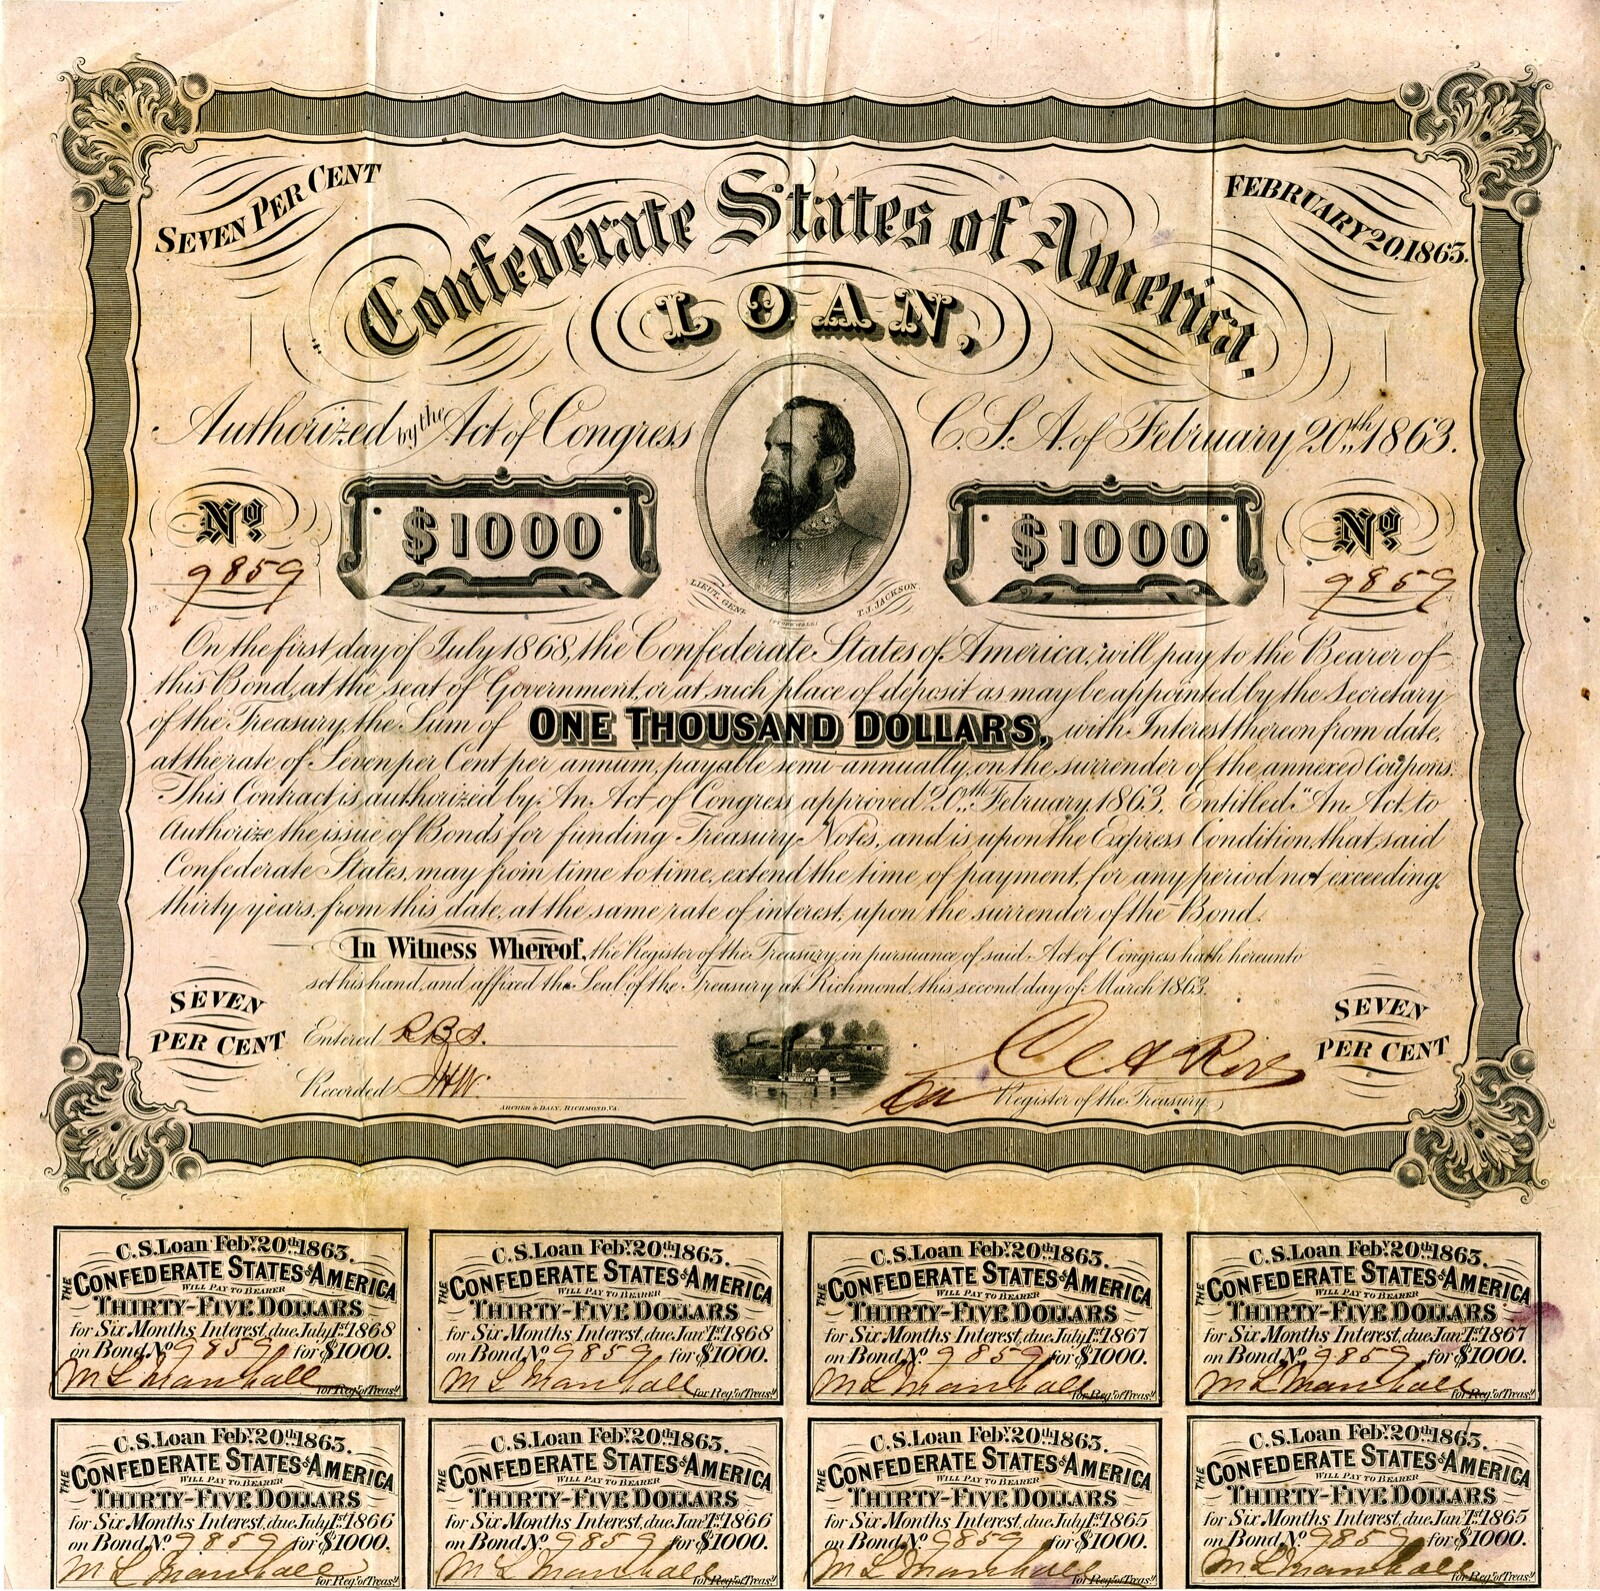 SEVEN PER CENT
FEBRUARY 20, 1863.
Confederate States of America.
LOAN,
Authorized by the Act of Congress C.S.A. of February 20th 1863.
No $1000 $1000 No
9859 9859
LIEUT. GENL T.J. JACKSON
On the first day of July 1868, the Confederate States of America, will pay to the Bearer of
this Bond, at the seat of Government, or at such place of deposit as may be appointed by the Secretary
of the Treasury, the Sum of ONE THOUSAND DOLLARS, with Interest thereon from date,
at the rate of Seven per Cent per annum, payable semi-annually, on the surrender of the annexed Coupons.
This Contract is authorized by An Act of Congress approved 20th February 1863, Entitled "An Act to
Authorize the issue of Bonds for funding Treasury Notes, and is upon the Express Condition that said
Confederate States, may from time to time, extend the time of payment, for any period not exceeding
thirty years, from this date, at the same rate of interest, upon the surrender of the Bond.
In Witness Whereof, the Register of the Treasury, in pursuance of said Act of Congress hath hereunto
set his hand, and affixed the Seal of the Treasury at Richmond, this second day of March 1863.
SEVEN PER CENT
Entered R.B.S.
Recorded JHW.
ARCHER & DALY, RICHMOND, VA.
Register of the Treasury
SEVEN PER CENT
C.S. Loan Feby. 20th 1863.
THE CONFEDERATE STATES OF AMERICA
WILL PAY TO BEARER
THIRTY-FIVE DOLLARS
for Six Months Interest, due July 1st 1868
on Bond No 9859 for $1000.
M L Marshall for Reg. of Treasy
C.S. Loan Feby. 20th 1863.
THE CONFEDERATE STATES OF AMERICA
WILL PAY TO BEARER
THIRTY-FIVE DOLLARS
for Six Months Interest, due Jany 1st 1868
on Bond No 9859 for $1000.
M L Marshall for Reg. of Treasy
C.S. Loan Feby. 20th 1863.
THE CONFEDERATE STATES OF AMERICA
WILL PAY TO BEARER
THIRTY-FIVE DOLLARS
for Six Months Interest, due July 1st 1867
on Bond No 9859 for $1000.
M L Marshall for Reg. of Treasy
C.S. Loan Feby. 20th 1863.
THE CONFEDERATE STATES OF AMERICA
WILL PAY TO BEARER
THIRTY-FIVE DOLLARS
for Six Months Interest, due Jany 1st 1867
on Bond No 9859 for $1000.
M L Marshall for Reg. of Treasy
C.S. Loan Feby. 20th 1863.
THE CONFEDERATE STATES OF AMERICA
WILL PAY TO BEARER
THIRTY-FIVE DOLLARS
for Six Months Interest, due July 1st 1866
on Bond No 9859 for $1000.
M L Marshall for Reg. of Treasy
C.S. Loan Feby. 20th 1863.
THE CONFEDERATE STATES OF AMERICA
WILL PAY TO BEARER
THIRTY-FIVE DOLLARS
for Six Months Interest, due Jany 1st 1866
on Bond No 9859 for $1000.
M L Marshall for Reg. of Treasy
C.S. Loan Feby. 20th 1863.
THE CONFEDERATE STATES OF AMERICA
WILL PAY TO BEARER
THIRTY-FIVE DOLLARS
for Six Months Interest, due July 1st 1865
on Bond No 9859 for $1000.
M L Marshall for Reg. of Treasy
C.S. Loan Feby. 20th 1863.
THE CONFEDERATE STATES OF AMERICA
WILL PAY TO BEARER
THIRTY-FIVE DOLLARS
for Six Months Interest, due Jany 1st 1865
on Bond No 9859 for $1000.
M L Marshall for Reg. of Treasy